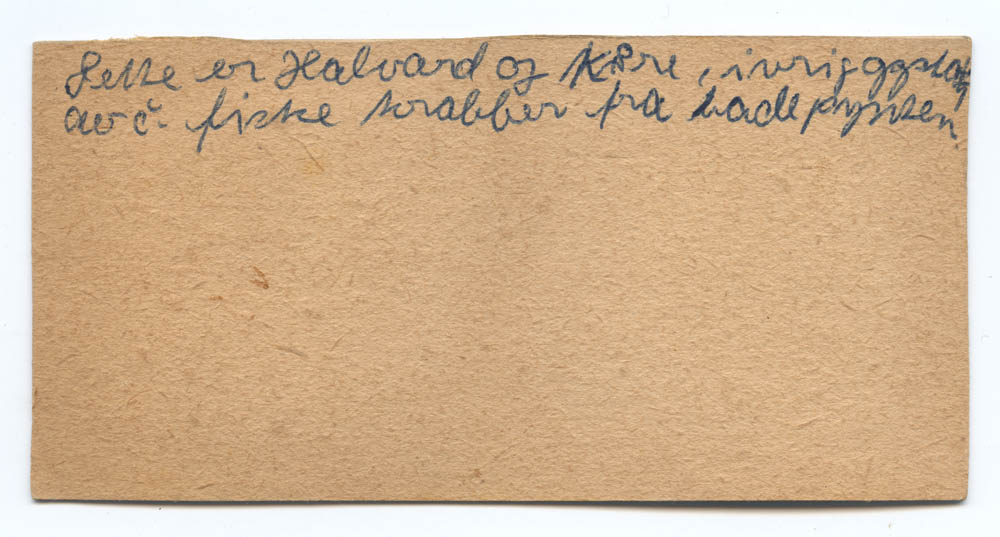 Dette er Halvard og Kåre, ivrig oppstatt
av å fiske krabber fra badeplyssen.